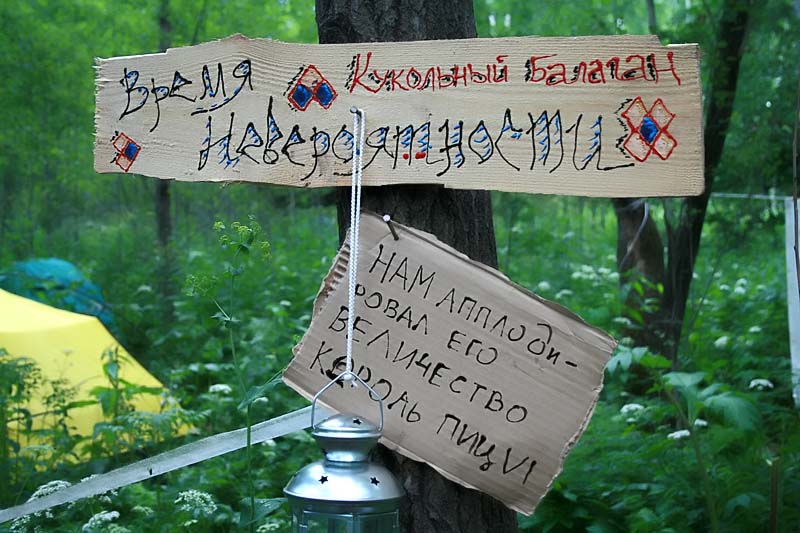 Время Кукольный Балаган
Невероятности
НАМ АППЛОДИ-
РОВАЛ ЕГО
ВЕЛИЧЕСТВО
КОРОЛЬ ПИЦ VI